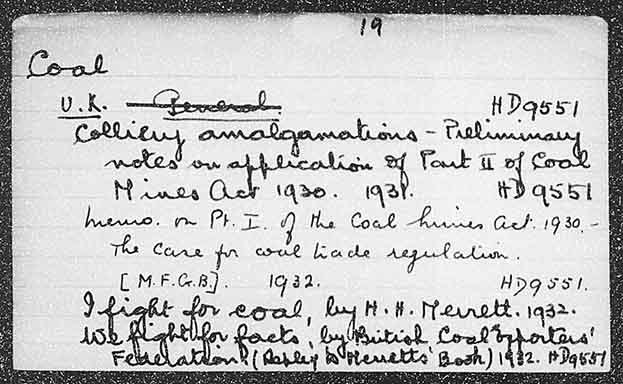 19
Coal
U.K. General HD9551
Colliery amalgamations - Preliminary
notes on application of Part II of Coal
Mines Act 1930. 1931. HD9551
Memo. on Pt. I. of the Coal Mines Act. 1930. -
The Case for coal trade regulation.
[M.F.G.B.]. 1932. HD9551.
I fight for coal, by H. H. Merrett. 1932.
We fight for facts, by British Coal Exporters'
Federation. (Reply to Merretts' Book) 1932. HD9551